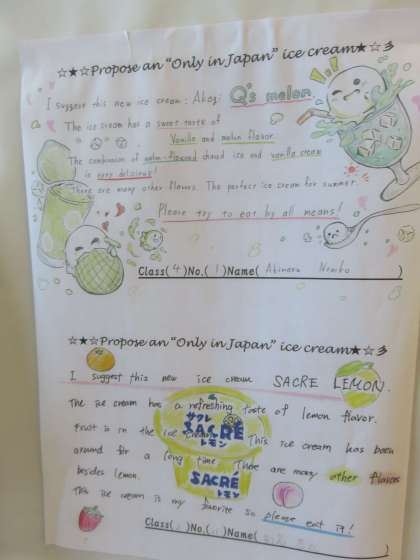 ☆★☆Propose an "Only in Japan" ice cream★☆彡
I suggest this new ice cream: Akagi Q's melon.
The ice cream has a sweet taste of
Vanilla and melon flavor.
The combination of melon-flavored shaved ice and vanilla cream
is very delicious!
There are many other flavors. The perfect ice cream for summer.
Please try to eat by all means!
Class(4)No.(1)Name( )
☆★☆Propose an "Only in Japan" ice cream★☆彡
I suggest this new ice cream SACRE LEMON.
The ice cream has a refreshing taste of lemon flavor.
Fruit is in the ice cream. This ice cream has been
around for a long time. There are many other flavors
besides lemon.
This ice cream is my favorite so please eat it!
サクレ
SACRE
レモン
SACRE
レモン
Class( )No.( )Name(